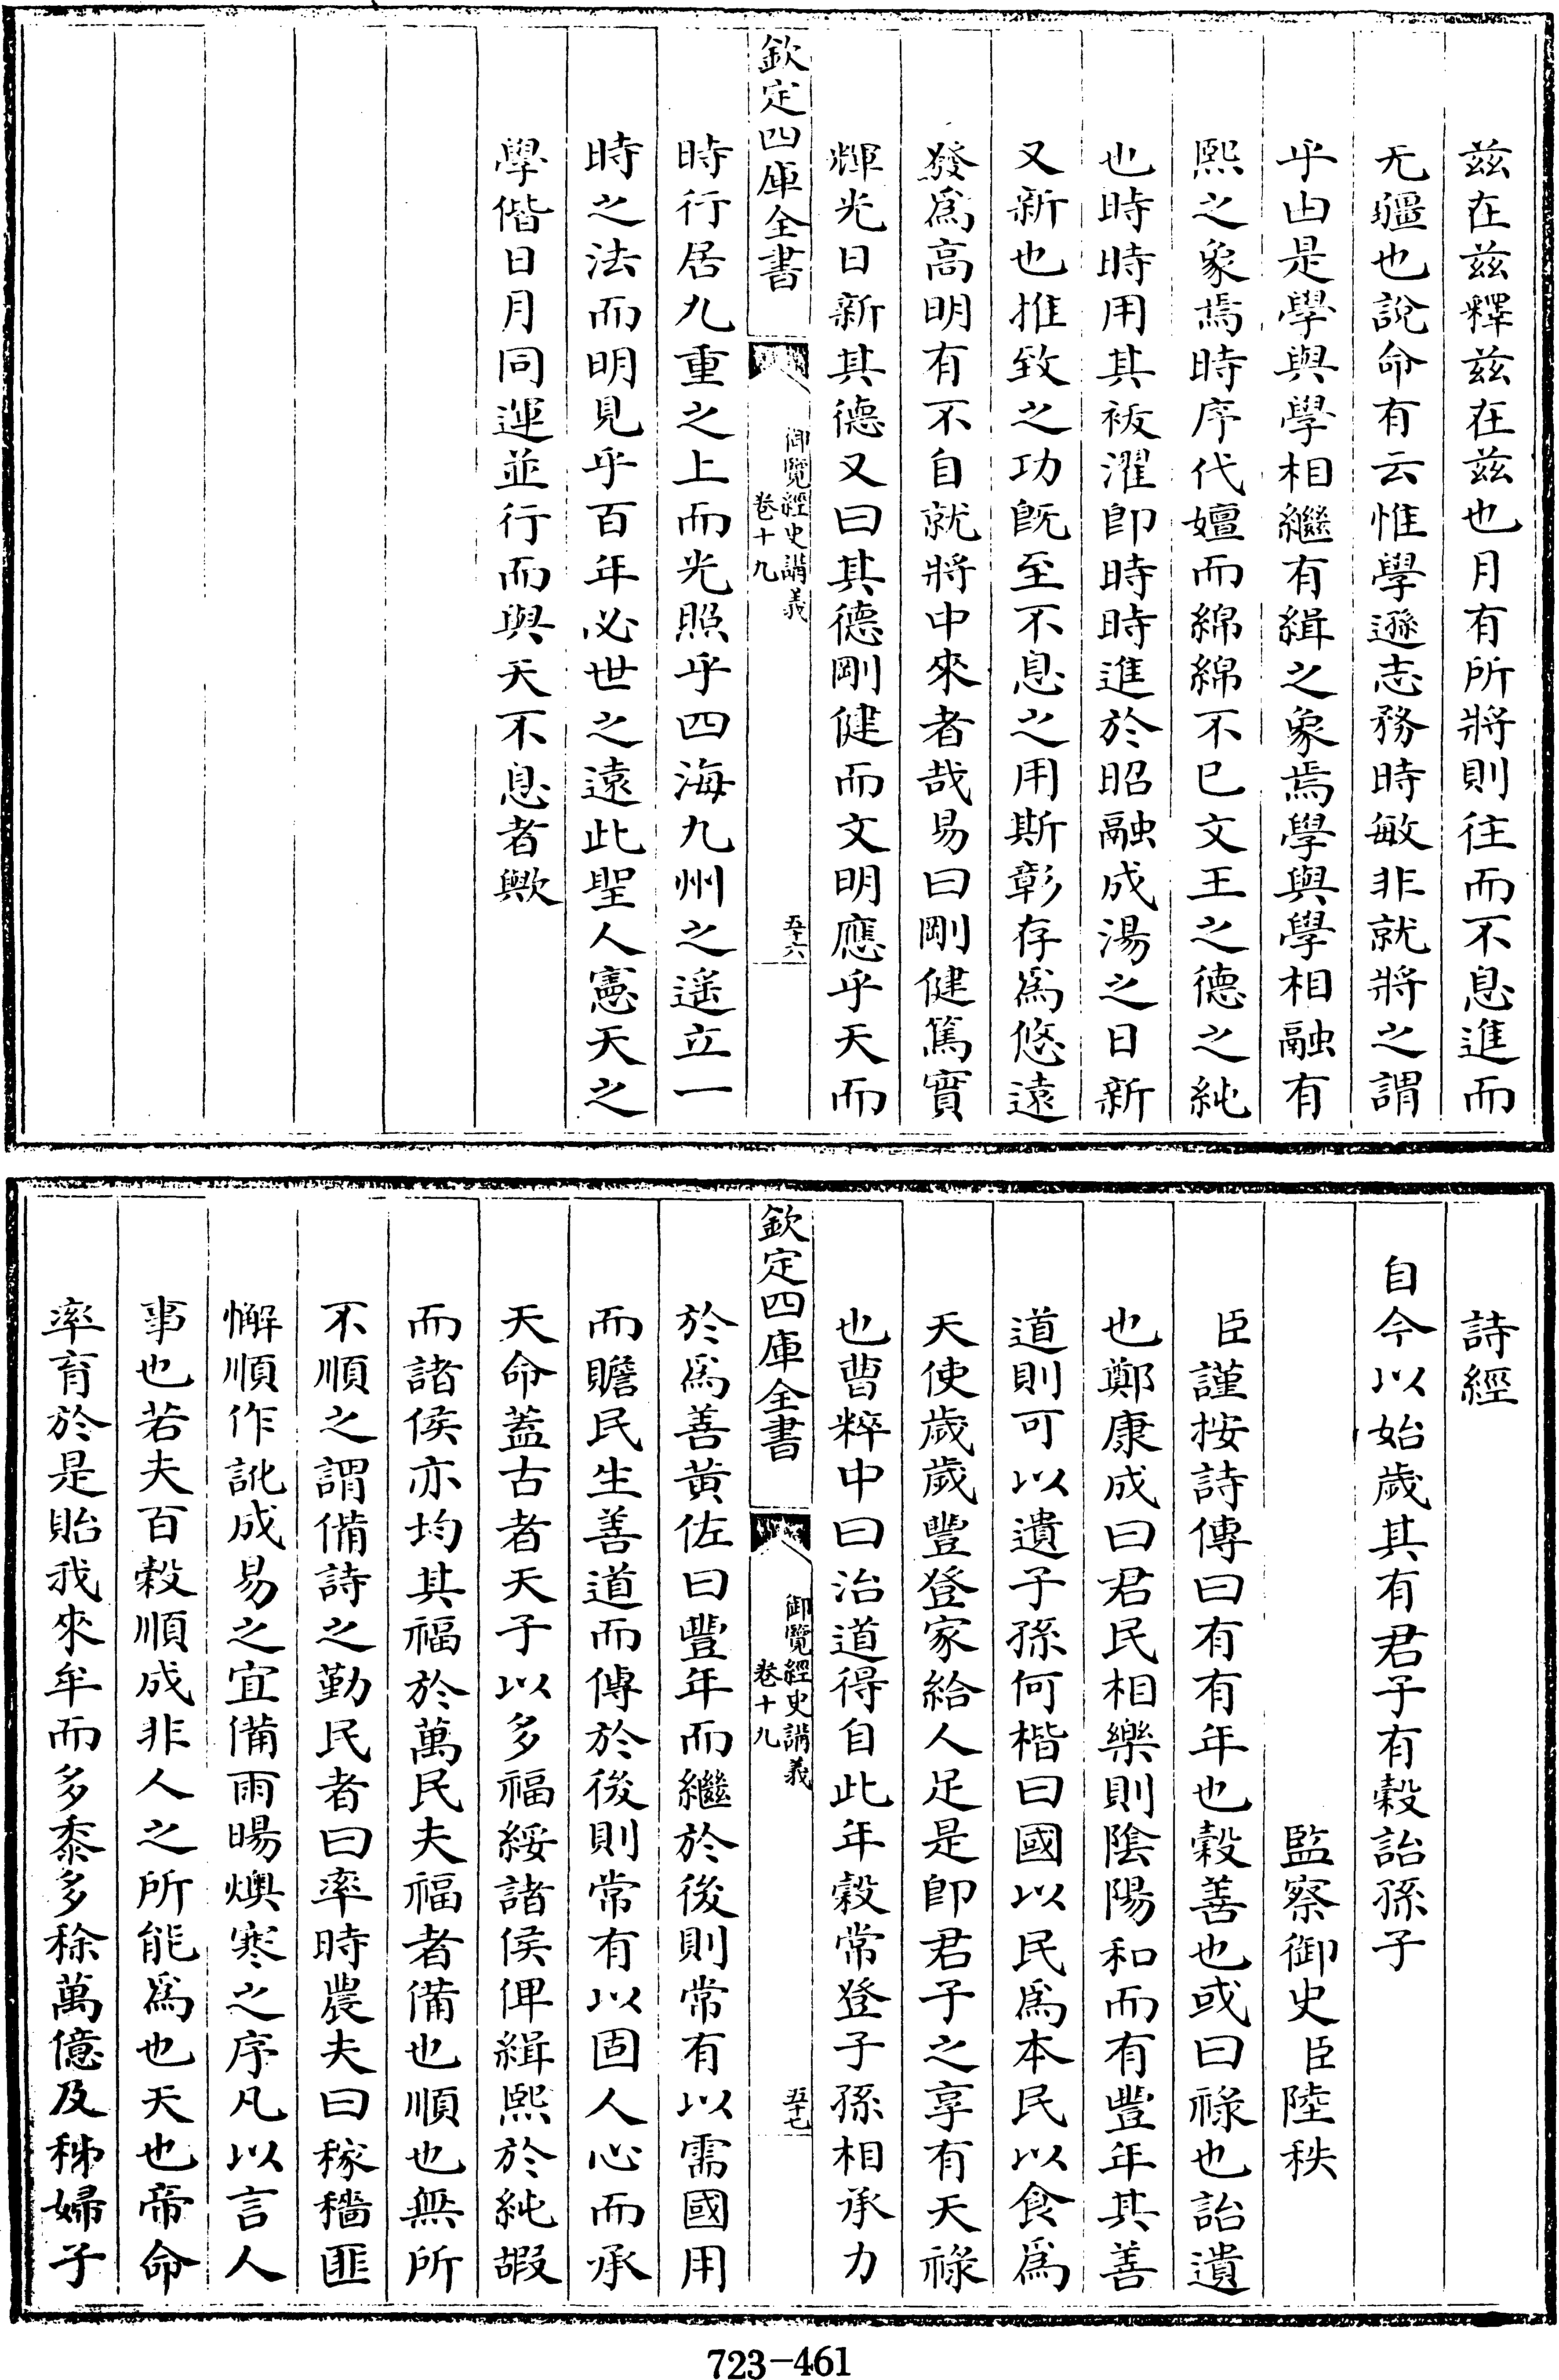 兹在兹釋兹在兹也月有所將則往而不息進而
无疆也說命有云惟學遜志務時敏非就將之謂
乎由是學與學相繼有緝之象焉學與學相融有
熙之象焉時序代嬗而綿綿不已文王之德之純
也時時用其祓濯即時時進於昭融成湯之日新
又新也推致之功既至不息之用斯彰存為悠遠
發為高明有不自就將中來者哉易曰剛健篤實
輝光日新其德又曰其德剛健而文明應乎天而
欽定四庫全書
御覽經史講義
卷十九
五十六
時行居九重之上而光照乎四海九州之遥立一
時之法而明見乎百年必世之遠此聖人憲天之
學偕日月同運並行而與天不息者歟
詩經
自今以始歲其有君子有穀詒孫子
監察御史臣陸秩
臣謹按詩傳曰有有年也穀善也或曰祿也詒遺
也鄭康成曰君民相樂則陰陽和而有豐年其善
道則可以遺子孫何楷曰國以民為本民以食為
天使歲歲豐登家給人足是即君子之享有天祿
也曹粹中曰治道得自此年穀常登子孫相承力
欽定四庫全書
御覽經史講義
卷十九
五十七
於為善黃佐曰豐年而繼於後則常有以需國用
而贍民生善道而傳於後則常有以固人心而承
天命蓋古者天子以多福綏諸侯俾緝熙於純嘏
而諸侯亦均其福於萬民夫福者備也順也無所
不順之謂備詩之勤民者曰率時農夫曰稼穡匪
懈順作訛成易之宜備雨暘燠寒之序凡以言人
事也若夫百穀順成非人之所能為也天也帝命
率育於是貽我來牟而多黍多稌萬億及秭婦子
723-461